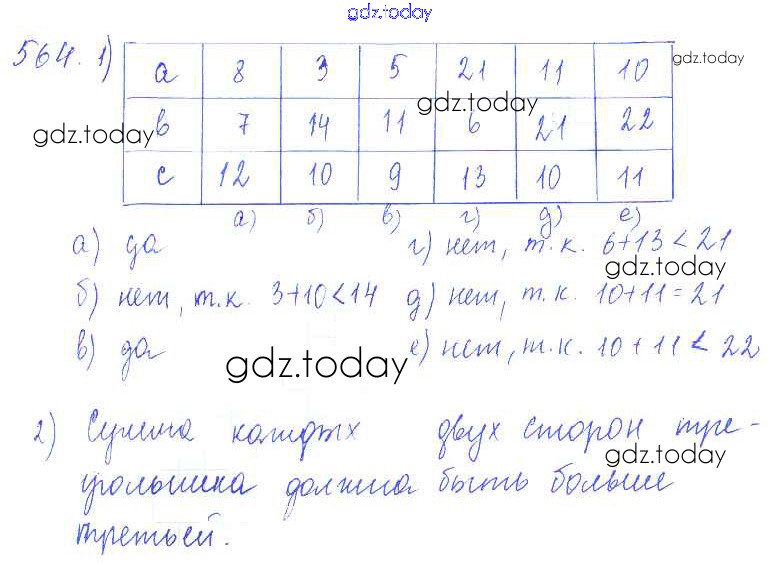 gdz.today
564. 1)
a 8 3 5 21 11 10
gdz.today
gdz.today
в 7 14 11 6 21 22
gdz.today
c 12 10 9 13 10 11
а) б) в) г) д) е)
а) да
г) нет, т.к. 6+13<21
gdz.today
б) нет, т.к. 3+10<14
д) нет, т.к. 10+11=21
в) да
е) нет, т.к. 10+11<22
gdz.today
2) Сумма каждых двух сторон тре-
gdz.today
угольника должна быть больше
третьей.